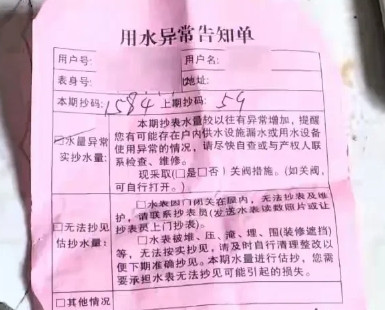 用水异常告知单
用户号: 用户名:
表身号: 地址:
本期抄码: 1584 上期抄码: 59
本期抄表水量较以往有异常增加,提醒
您有可能存在户内供水设施漏水或用水设备
□水量异常 使用异常的情况,请尽快自查或与产权人联
实抄水量: 系检查、维修。
现采取(□是□否)关阀措施。(如关阀,
可自行打开。)
□水表因门闭关在屋内,无法抄表及维
护,请联系抄表员(发送水表读数照片或让
抄表员上门抄表)。
□无法抄见 □水表破堆、压、淹、埋、围(装修遮挡)
估抄水量: 等,无法按实抄见,请及时自行清理整改以
便下期准确抄见。本期水量进行估抄,您需
要承担水表无法抄见可能引起的损失。
□其他情况